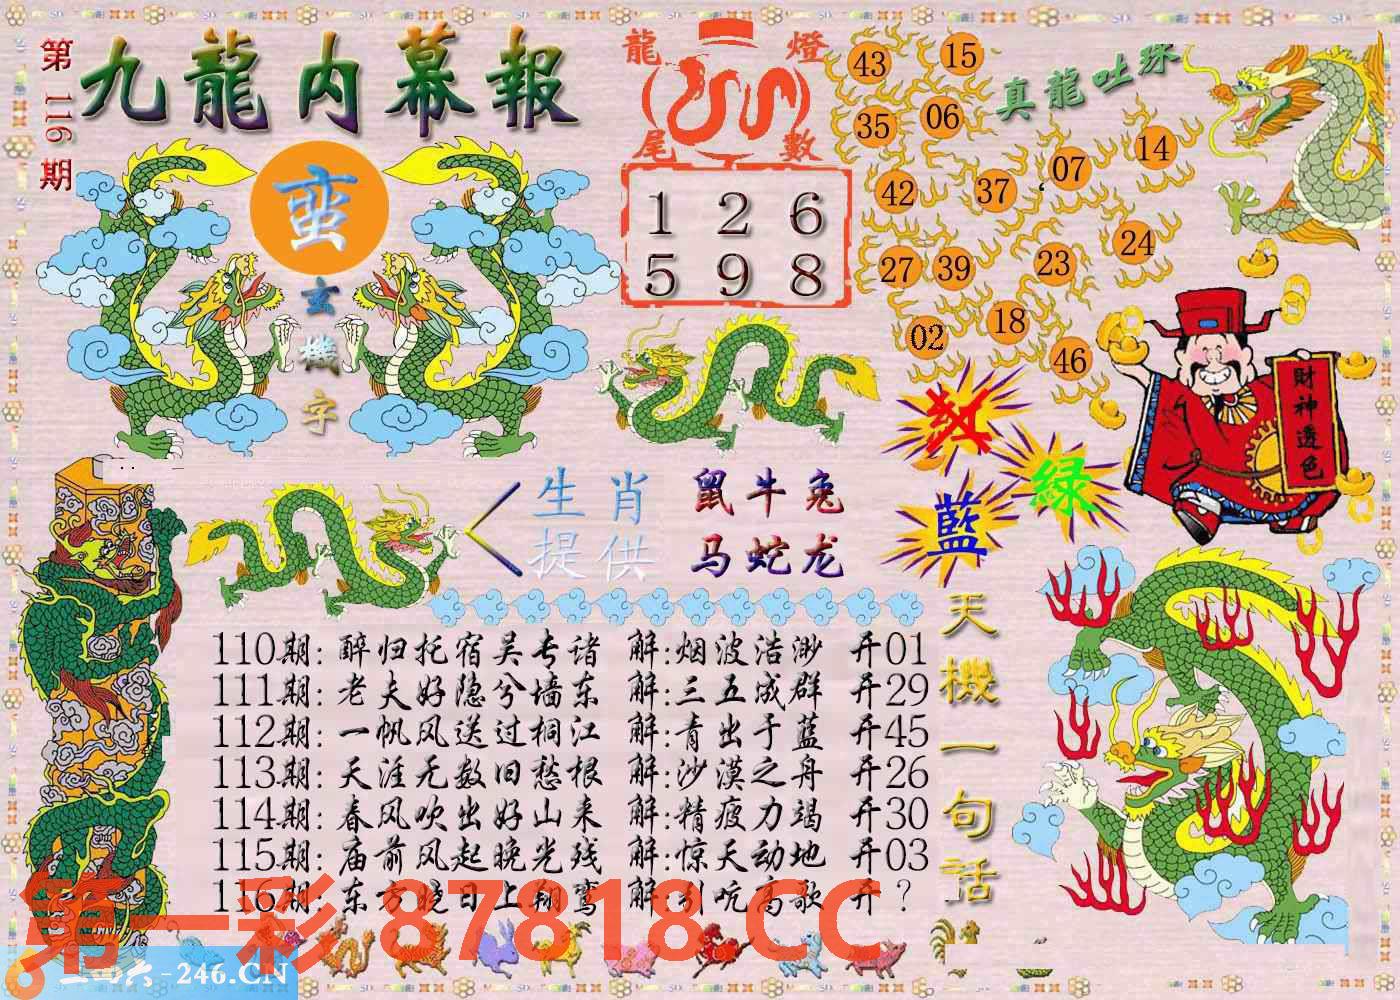 第116期
九龍内幕報
蛮
玄機字
龍燈
尾數
1 2 6
5 9 8
真龍吐珠
43 15
35 06
42 37 07 14
27 39 23 24
02 18 46
財神透色
红
绿
藍
生肖
提供
鼠牛兔
马蛇龙
天機一句話
110期: 醉归托宿吴专诸 解:烟波浩渺 开01
111期: 老夫好隐兮墙东 解:三五成群 开29
112期: 一帆风送过桐江 解:青出于蓝 开45
113期: 天涯无数旧愁根 解:沙漠之舟 开26
114期: 春风吹出好山来 解:精疲力竭 开30
115期: 庙前风起晚光残 解:惊天动地 开03
116期: 东方晓日上翔鸾 解:引吭高歌 开？
第一彩 87818.CC
二四六-246.CN